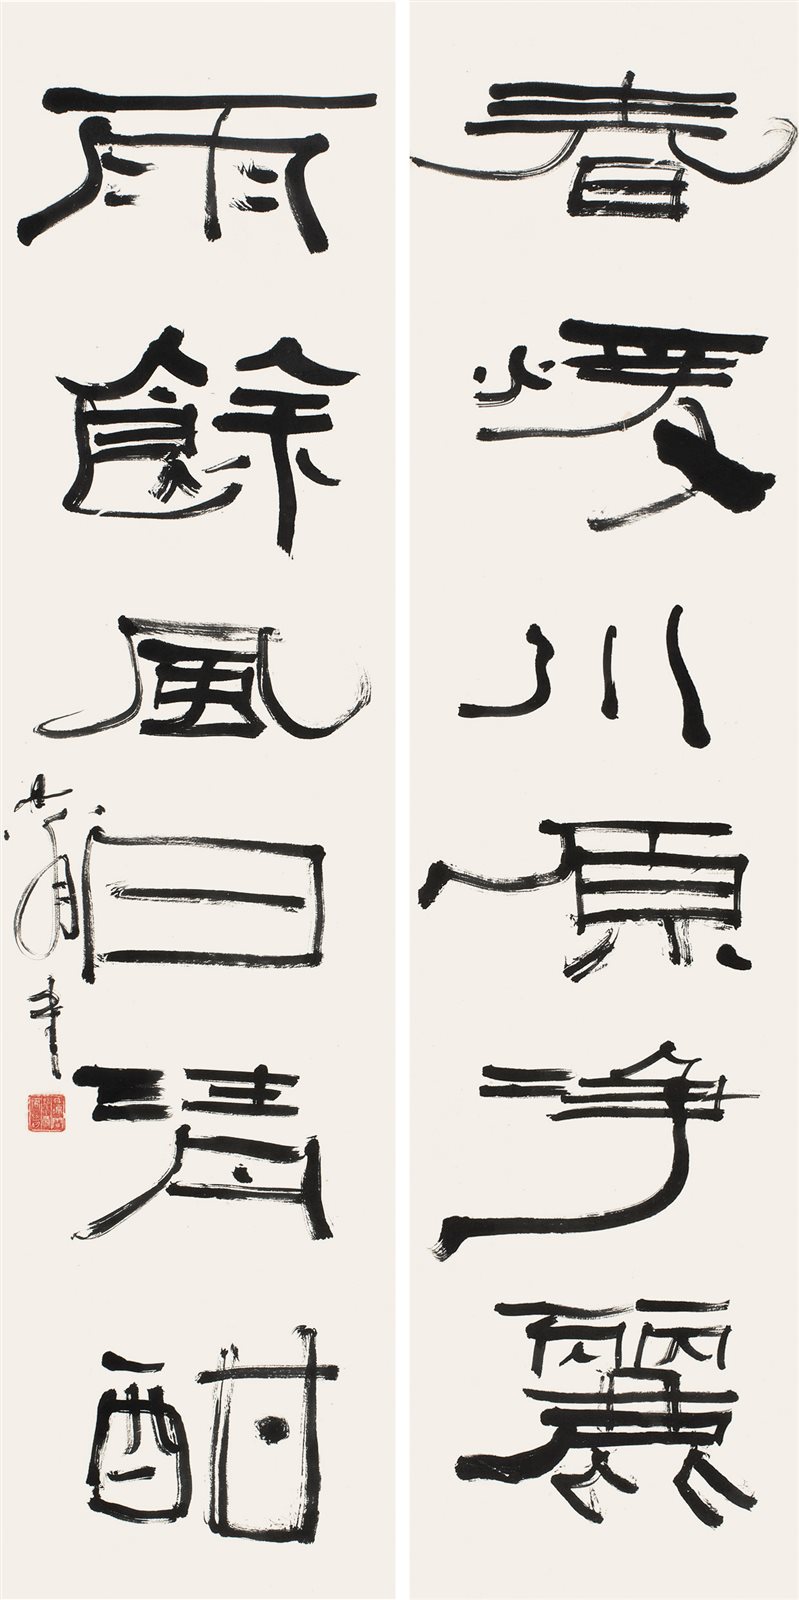 春煖川原净麗
雨餘風日清酣